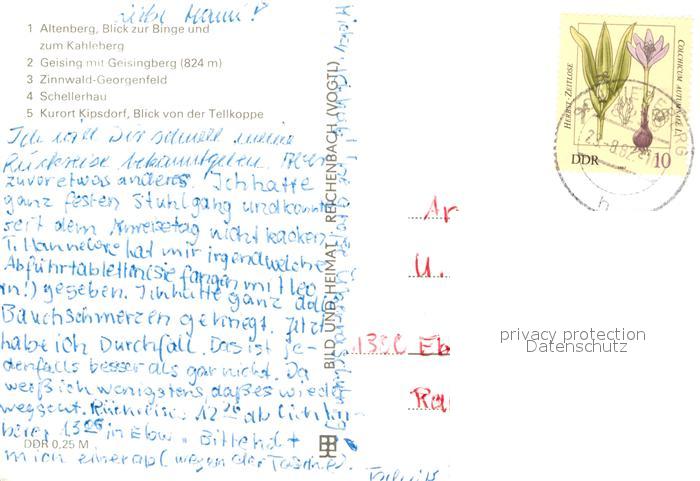 Liebe Mami!
1 Altenberg, Blick zur Binge und
zum Kahleberg
2 Geising mit Geisingberg (824 m)
3 Zinnwald-Georgenfeld
4 Schellerhau
5 Kurort Kipsdorf, Blick von der Tellkoppe
Ich will Dir schnell meine
Rückreise bekanntgeben. Aber
zuvor etwas anderes. Ich hatte
ganz festen Stuhlgang und konnte
seit dem Anreisetag nicht kacken.
T. Hannelore hat mir irgendwelche
Abführtabletten (sie fangen mit Leo
an!) gegeben. Ich hatte ganz dolle
Bauchschmerzen gekriegt. Jetzt
habe ich Durchfall. Das ist je-
denfalls besser als gar nicht. Da
weiß ich wenigstens, daß es wieder
weggeht. 12 ab
13 in Ebw. Bitte hol
mich einer ab (wegen der Tasche).
DDR 0,25 M
BILD UND HEIMAT REICHENBACH (VOGTL)
HERBST-ZEITLOSE
COLCHICUM AUTUMNALE L.
DDR
10
Ar
U.
1300 Eb
privacy protection
Datenschutz